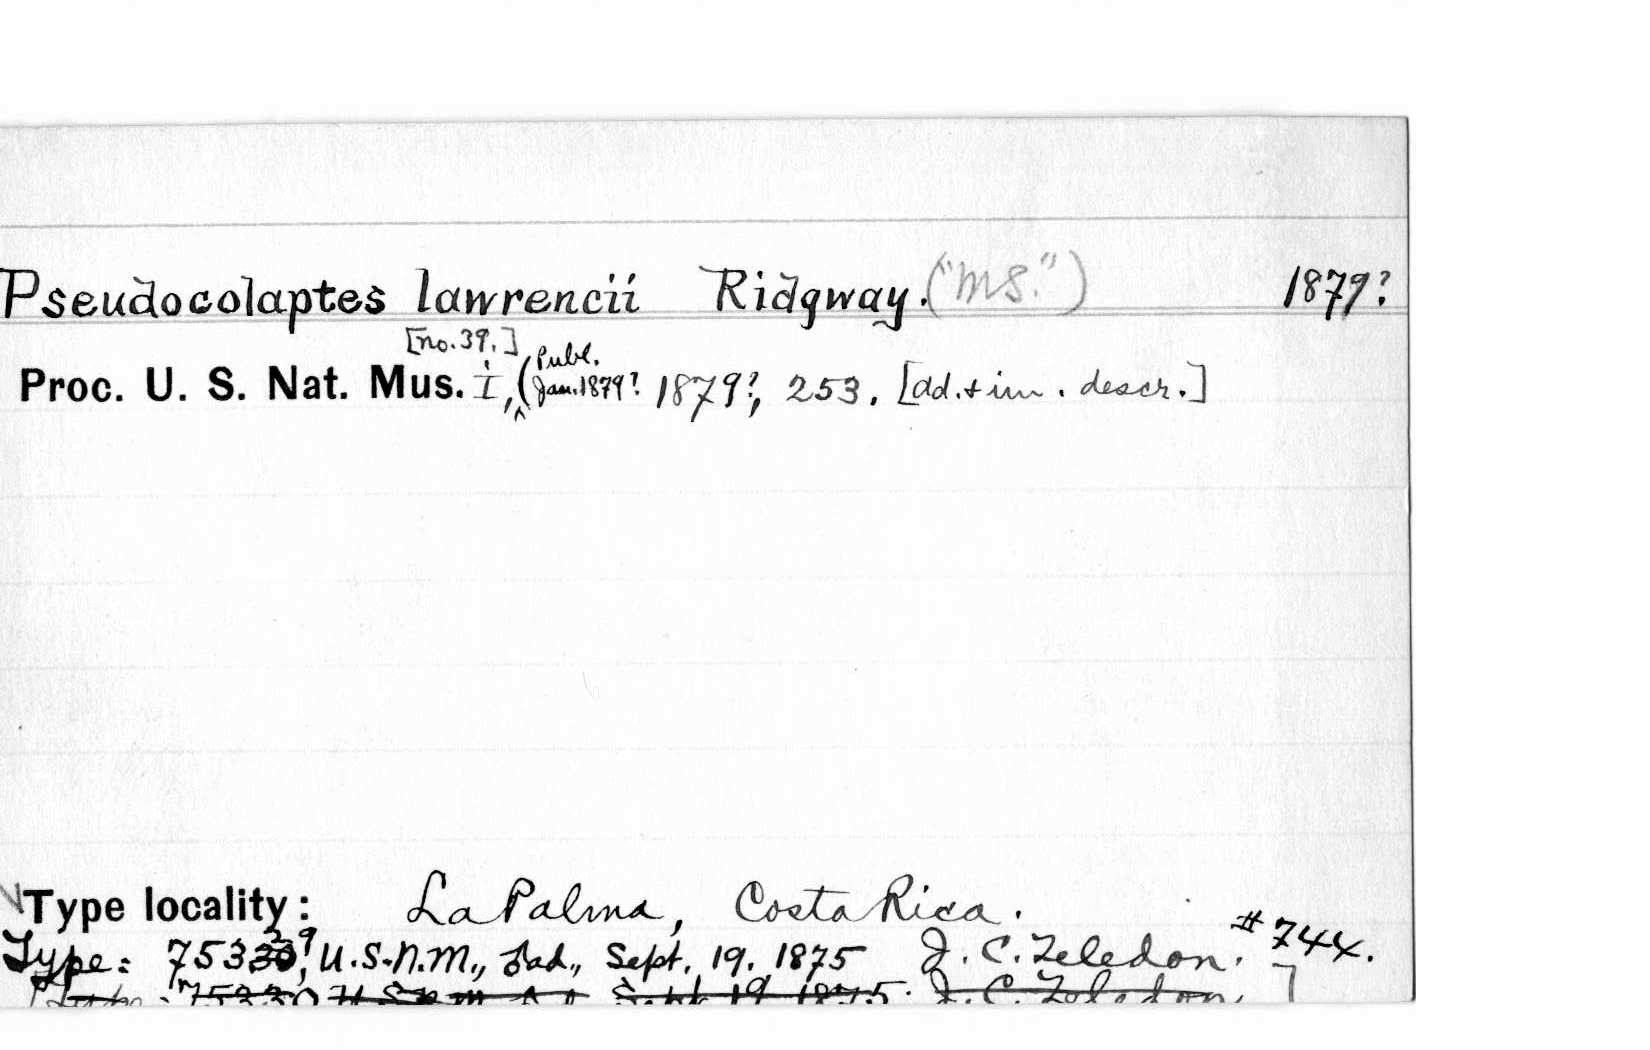 Pseudocolaptes lawrencii Ridgway. ("MS.") 1879?
[no.39.]
Proc. U. S. Nat. Mus. i, (Publ. Jan. 1879? 1879?, 253. [ad. + im. descr.]
Type locality: La Palma, Costa Rica.
Type: 75329, U.S.N.M., ad., Sept. 19, 1875 J. C. Zeledon. #744.
75330 U.S.N.M. Sept. 19 1875. J. C. Zeledon. ]